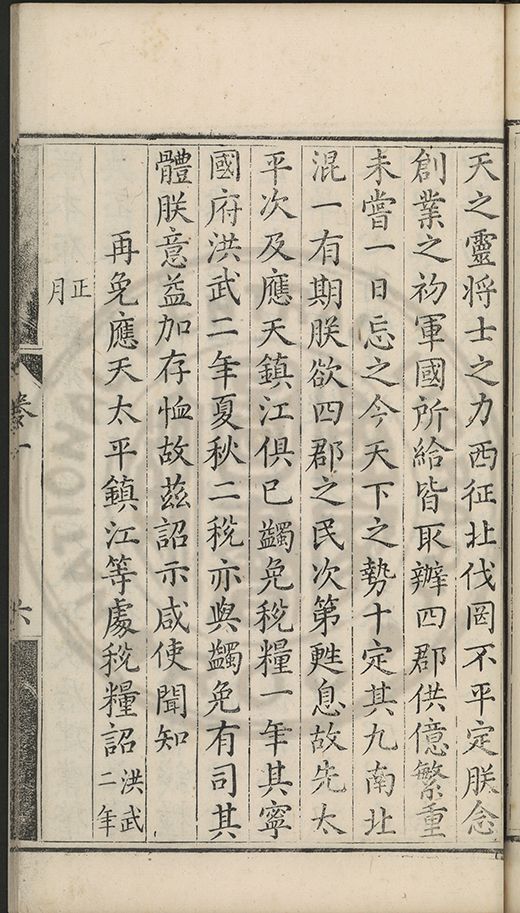 天之靈將士之力西征北伐罔不平定朕念
創業之初軍國所給皆取辦四郡供億繁重
未嘗一日忘之今天下之勢十定其九南北
混一有期朕欲四郡之民次第甦息故先太
平次及應天鎮江俱已蠲免稅糧一年其寧
國府洪武二年夏秋二稅亦與蠲免有司其
體朕意益加存恤故茲詔示咸使聞知
再免應天太平鎮江等處稅糧詔洪武二年
正月
卷一
六